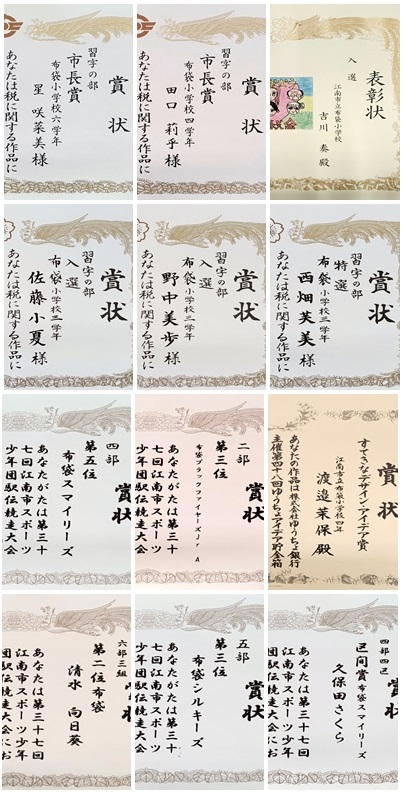 賞状
習字の部
市長賞
布袋小学校六学年
星 咲菜美 様
あなたは税に関する作品に
賞状
習字の部
市長賞
布袋小学校四学年
田口 莉乎 様
あなたは税に関する作品に
表彰状
入選
江南市立布袋小学校
吉川 奏 殿
賞状
習字の部
入選
布袋小学校三学年
佐藤小夏 様
あなたは税に関する作品に
賞状
習字の部
入選
布袋小学校三学年
野中美歩 様
あなたは税に関する作品に
賞状
習字の部
特選
布袋小学校三学年
西畑芙美 様
あなたは税に関する作品に
賞状
四部
第五位
布袋スマイリーズ
あなたがたは第三十
七回江南市スポーツ
少年団駅伝競走大会
賞状
二部
第三位
布袋ブラックファイヤーズJr A
あなたがたは第三十
七回江南市スポーツ
少年団駅伝競走大会
賞状
すてきなデザイン・アイデア賞
江南市立布袋小学校四年
渡邉茉保 殿
あなたの作品は株式会社ゆうちょ銀行
主催第四十八回ゆうちょアイデア貯金箱
賞状
六部三組
第二位布袋
清水 向日葵
あなたは第三十七回
江南市スポーツ少年
団駅伝競走大会にお
賞状
五部
第三位
布袋シルキーズ
あなたがたは第三十
七回江南市スポーツ
少年団駅伝競走大会
賞状
四部四区
区間賞布袋スマイリーズ
久保田さくら
あなたは第三十七回
江南市スポーツ少年
団駅伝競走大会にお